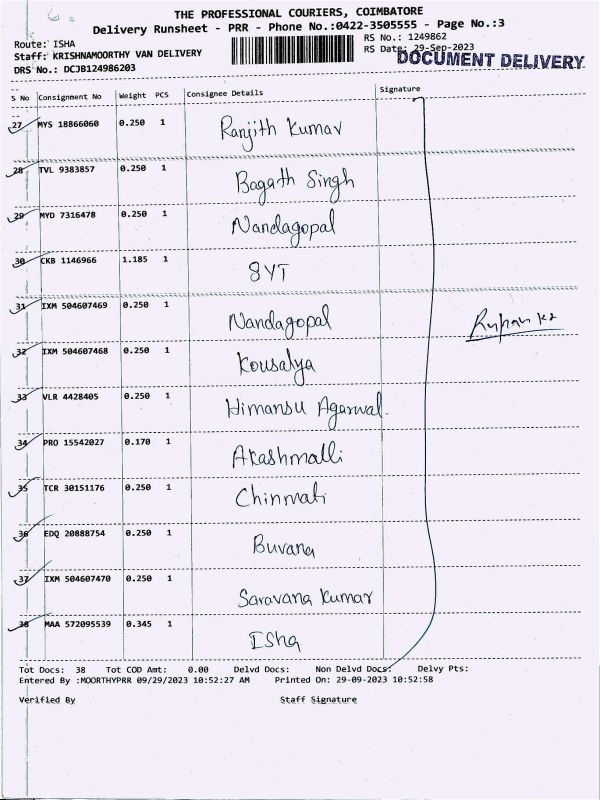 THE PROFESSIONAL COURIERS, COIMBATORE
Delivery Runsheet - PRR - Phone No.:0422-3505555 - Page No.:3
Route: ISHA RS No.: 1249862
Staff: KRISHNAMOORTHY VAN DELIVERY RS Date: 29-Sep-2023
DOCUMENT DELIVERY
DRS No.: DCJB124986203
S No Consignment No Weight PCS Consignee Details Signature
27 MYS 18866060 0.250 1 Ranjith Kumar
28 TVL 9383857 0.250 1 Bagath Singh
29 MYD 7316478 0.250 1 Nandagopal
30 CKB 1146966 1.185 1 SYT
31 IXM 504607469 0.250 1 Nandagopal
32 IXM 504607468 0.250 1 Kousalya
33 VLR 4428405 0.250 1 Himansu Agarwal
34 PRO 15542027 0.170 1 Akashmalli
35 TCR 30151176 0.250 1 Chinmati
36 EDQ 20888754 0.250 1 Buvana
37 IXM 504607470 0.250 1 Saravana Kumar
38 MAA 572095539 0.345 1 Isha
Tot Docs: 38 Tot COD Amt: 0.00 Delvd Docs: Non Delvd Docs: Delvy Pts:
Entered By :MOORTHYPRR 09/29/2023 10:52:27 AM Printed On: 29-09-2023 10:52:58
Verified By Staff Signature